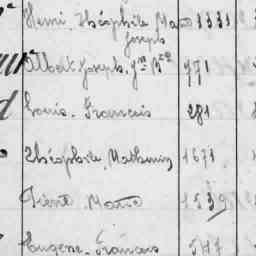 Henri, Théophile Marie 1331
Joseph
Albert Joseph, Jn Bte 771
Louis-François 281
Théophile, Mathurin 1671
Pierre Marie 1539
Eugène-François 547